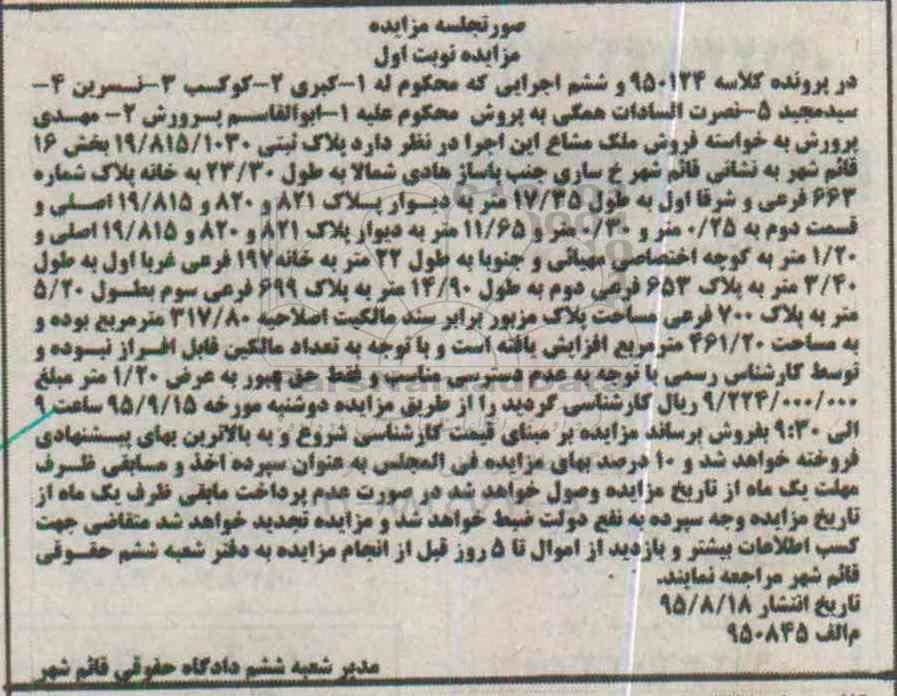 صورتجلسه مزایده
مزایده نوبت اول
در پرونده کلاسه ۹۵۰۱۲۴ و ششم اجرایی که محکوم له ۱-کبری ۲-کوکسب ۳-نسرین ۴-
سیدمجید ۵-نصرت السادات همگی به پروش محکوم علیه ۱-ابوالقاسم پرورش ۲- مهدی
پرورش به خواسته فروش ملک مشاع این اجرا در نظر دارد پلاک ثبتی ۱۹/۸۱۵/۱۰۳۰ بخش ۱۶
قائم شهر به نشانی قائم شهر خ ساری جنب پاساژ هادی شمالا به طول ۲۳/۳۰ به خانه پلاک شماره
۶۶۳ فرعی و شرقا اول به طول ۱۷/۳۵ متر به دیوار پلاک ۸۲۱ و ۸۲۰ و ۱۹/۸۱۵ اصلی و
قسمت دوم به ۰/۲۵ متر و ۰/۳۰ متر و ۱۱/۶۵ متر به دیوار پلاک ۸۲۱ و ۸۲۰ و ۱۹/۸۱۵ اصلی و
۱/۲۰ متر به کوچه اختصاصی مهبائی و جنوبا به طول ۲۲ متر به خانه ۱۹۷ فرعی غربا اول به طول
۳/۴۰ متر به پلاک ۶۵۳ فرعی دوم به طول ۱۴/۹۰ متر به پلاک ۶۹۹ فرعی سوم بطول ۵/۲۰
متر به پلاک ۷۰۰ فرعی مساحت پلاک مزبور برابر سند مالکیت اصلاحیه ۳۱۷/۸۰ مترمربع بوده و
به مساحت ۴۶۱/۲۰ مترمربع افزایش یافته است و با توجه به تعداد مالکین قابل افراز نبوده و
توسط کارشناس رسمی با توجه به عدم دسترسی مناسب و فقط حق عبور به عرض ۱/۲۰ متر مبلغ
۹/۲۲۴/۰۰۰/۰۰۰ ریال کارشناسی گردید را از طریق مزایده دوشنبه مورخه ۹۵/۹/۱۵ ساعت ۹
الی ۹:۳۰ بفروش برساند مزایده بر مبنای قیمت کارشناسی شروع و به بالاترین بهای پیشنهادی
فروخته خواهد شد و ۱۰ درصد بهای مزایده فی المجلس به عنوان سپرده اخذ و مابقی ظرف
مهلت یک ماه از تاریخ مزایده وصول خواهد شد در صورت عدم پرداخت مابقی ظرف یک ماه از
تاریخ مزایده وجه سپرده به نفع دولت ضبط خواهد شد و مزایده تجدید خواهد شد متقاضی جهت
کسب اطلاعات بیشتر و بازدید از اموال تا ۵ روز قبل از انجام مزایده به دفتر شعبه ششم حقوقی
قائم شهر مراجعه نمایند.
تاریخ انتشار ۹۵/۸/۱۸
م/الف ۹۵۰۸۴۵
مدیر شعبه ششم دادگاه حقوقی قائم شهر